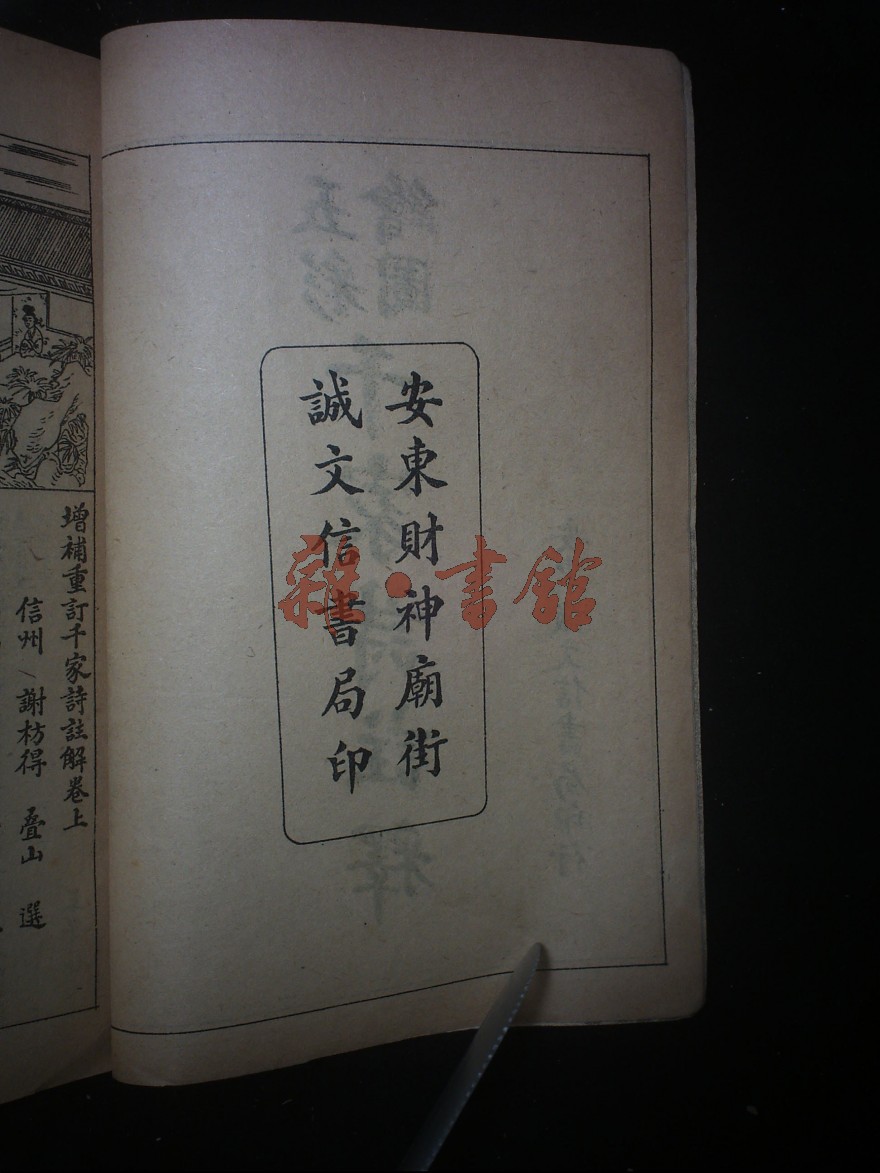 安東財神廟街
誠文信書局印
增補重訂千家詩註解卷上
信州 謝枋得 叠山 選
雜·書館
繪圖
五彩